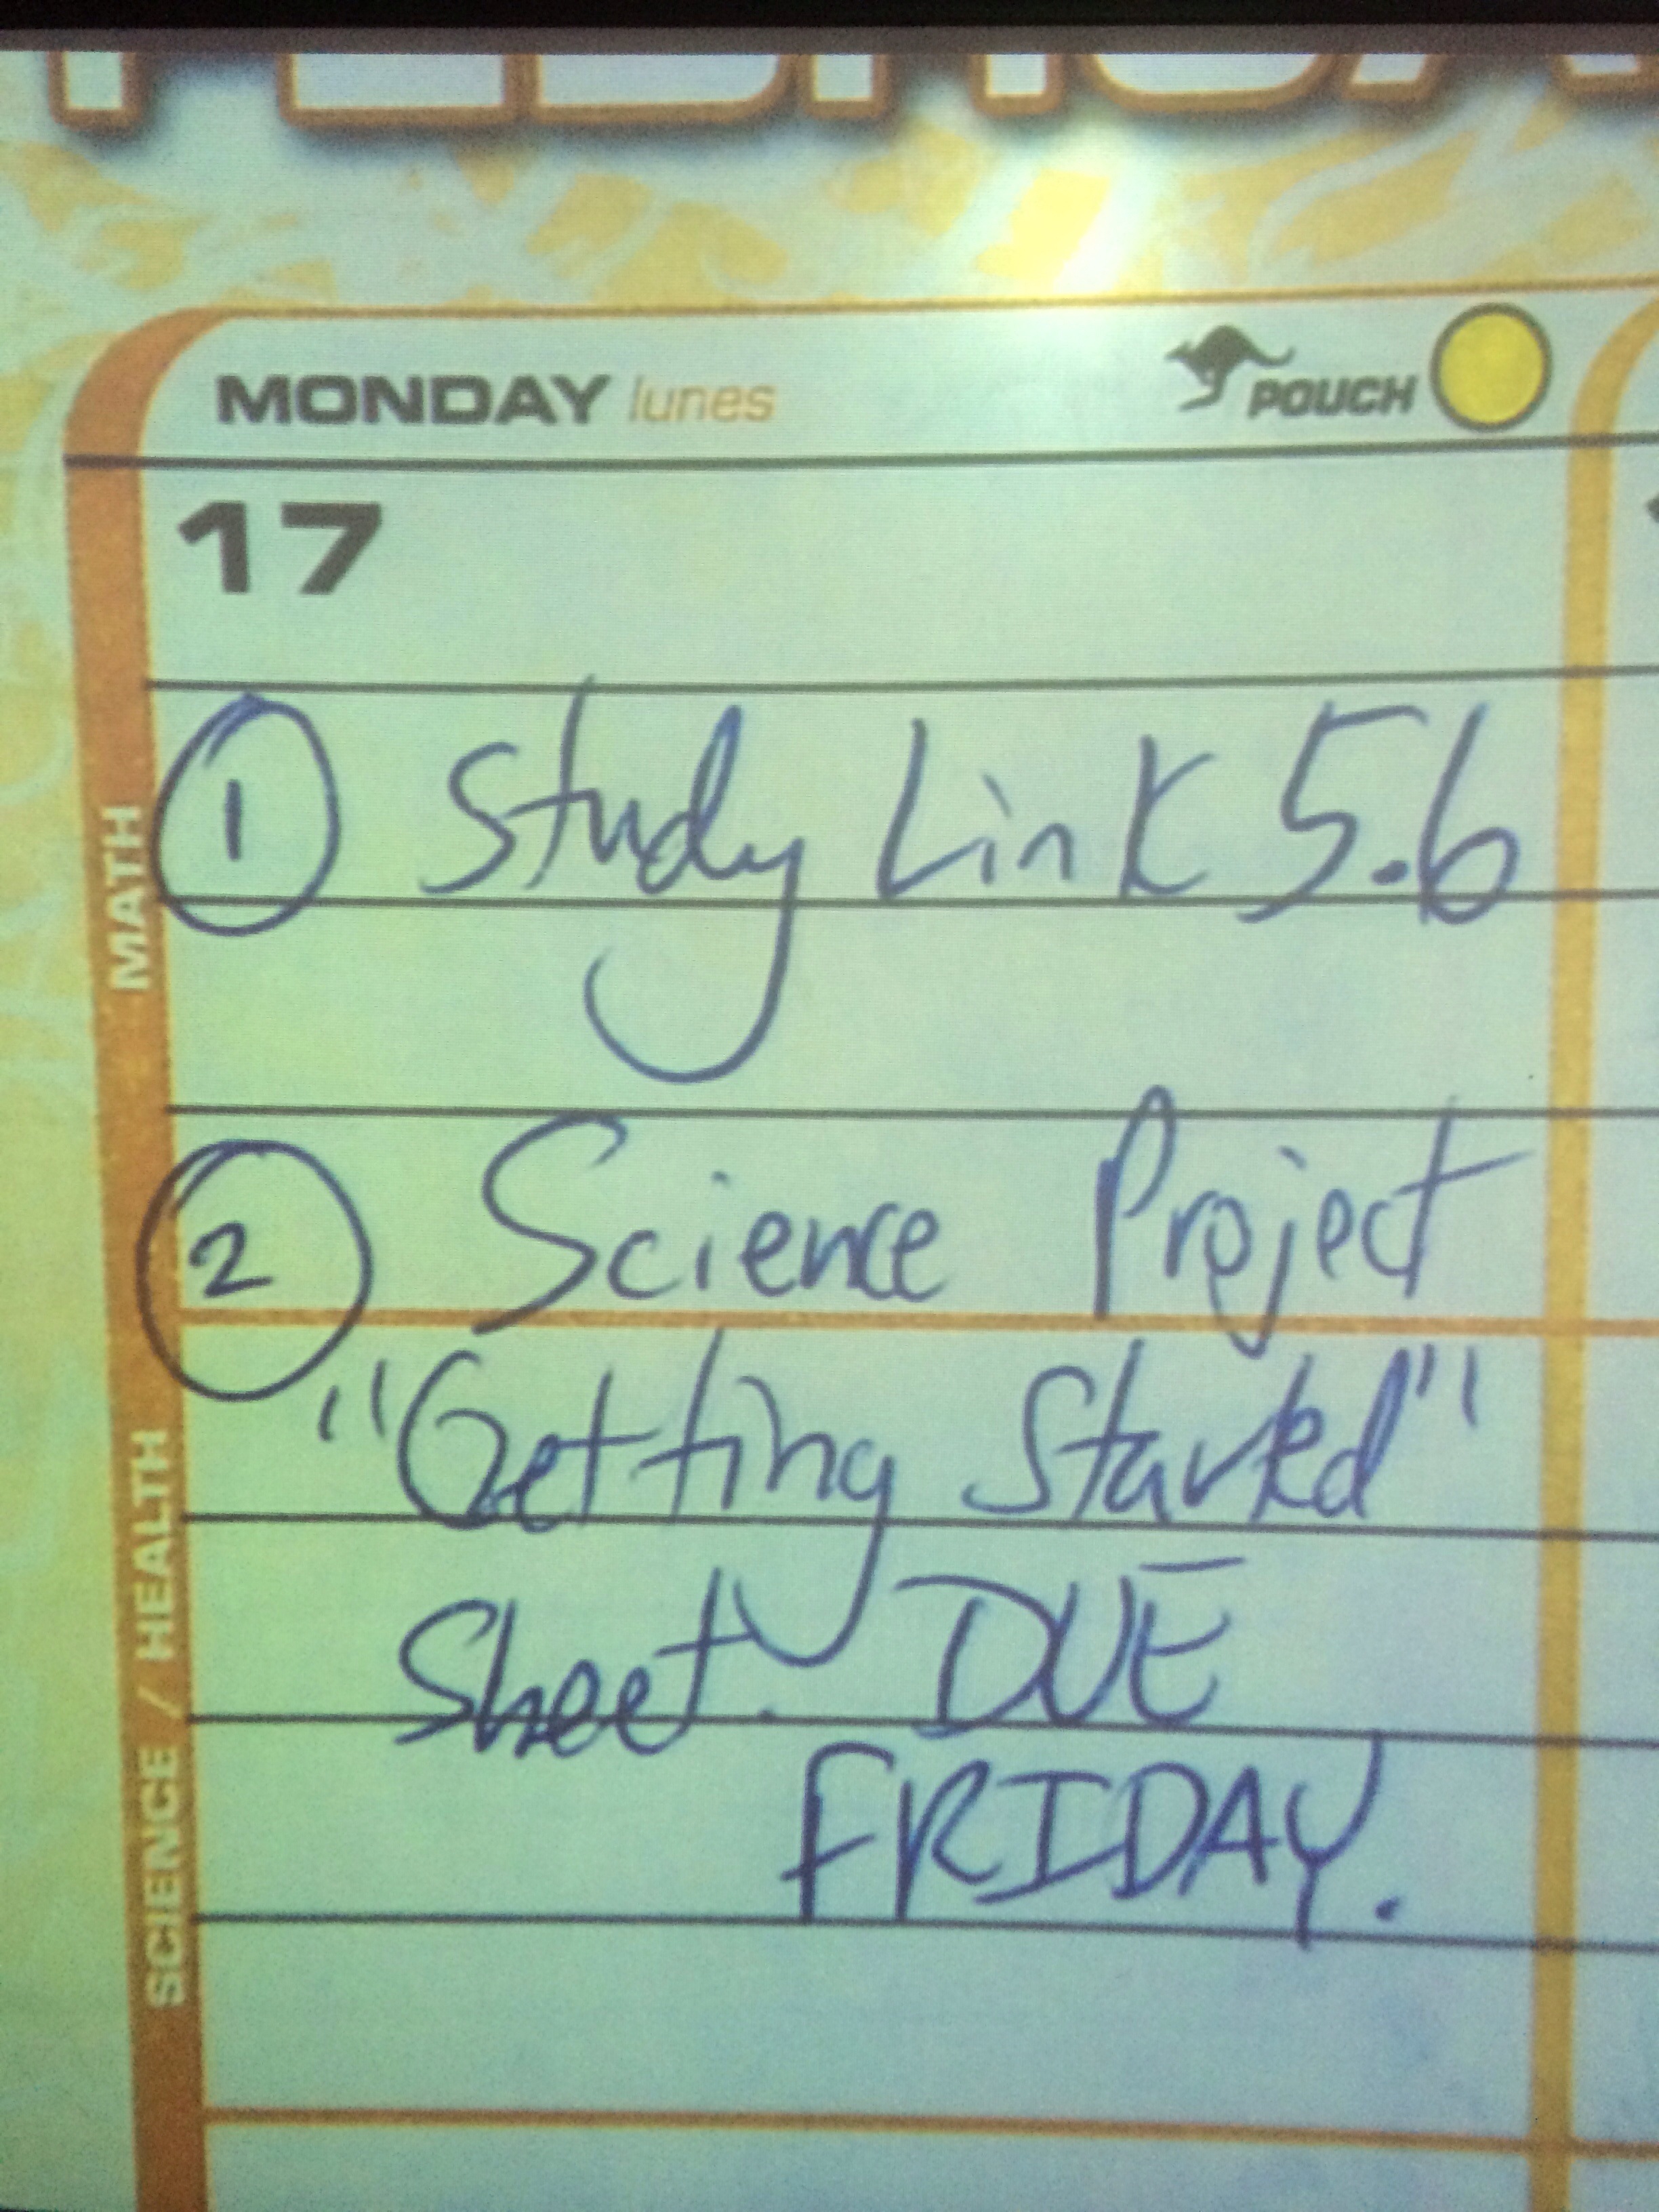 MONDAY lunes POUCH
17
MATH
1 Study Link 5.6
2 Science Project
"Getting Started"
SCIENCE / HEALTH
Sheet. DUE
FRIDAY.